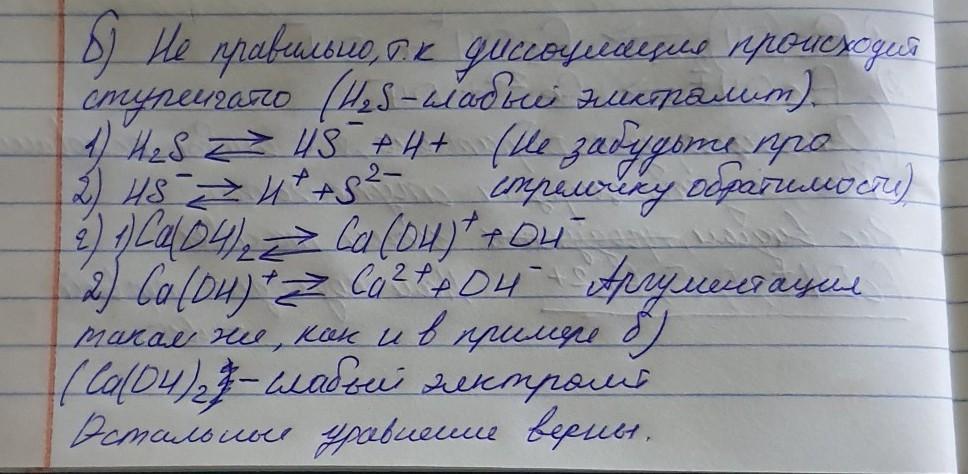 б) Не правильно, т.к диссоциация происходит
ступенчато (H₂S - слабый электролит).
1) H₂S ⇄ HS⁻ + H+ (Не забудьте про
2) HS⁻ ⇄ H⁺ + S²⁻ стрелочку обратимости)
г) 1) Ca(OH)₂ ⇄ Ca(OH)⁺ + OH⁻
2) Ca(OH)⁺ ⇄ Ca²⁺ + OH⁻ Аргументация
такая же, как и в примере б)
(Ca(OH)₂ - слабый электролит
Остальные уравнение верны.